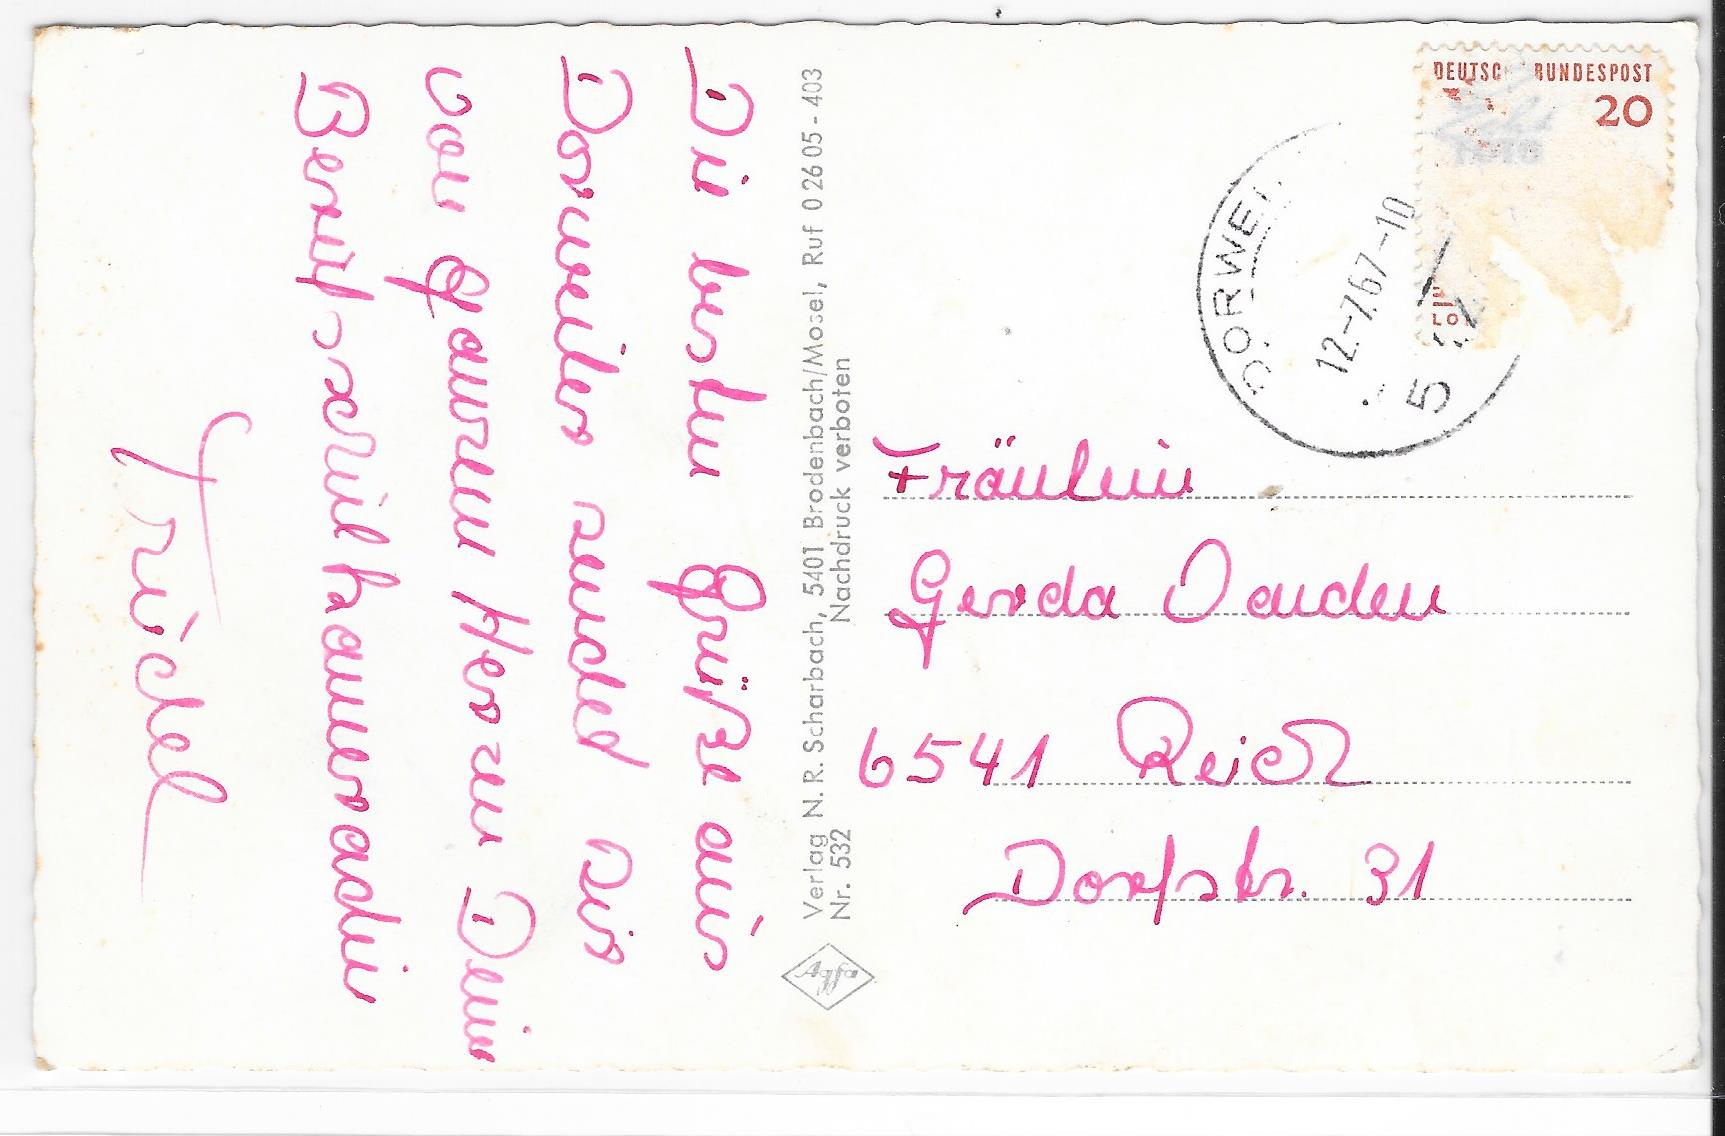 Die besten Grüße aus
Dorweiler sendet Dir
von ganzem Herzen Deine
Berufsschulkameradin
Trudel
Verlag N. R. Scharbach, 5401 Brodenbach/Mosel, Ruf 0 26 05 - 403
Nr. 532 Nachdruck verboten
Agfa
DEUTSC BUNDESPOST
20
LO
DORWEI
12.-7.67-10
5
Fräulein
Gerda
6541 Reich
Dorfstr. 31